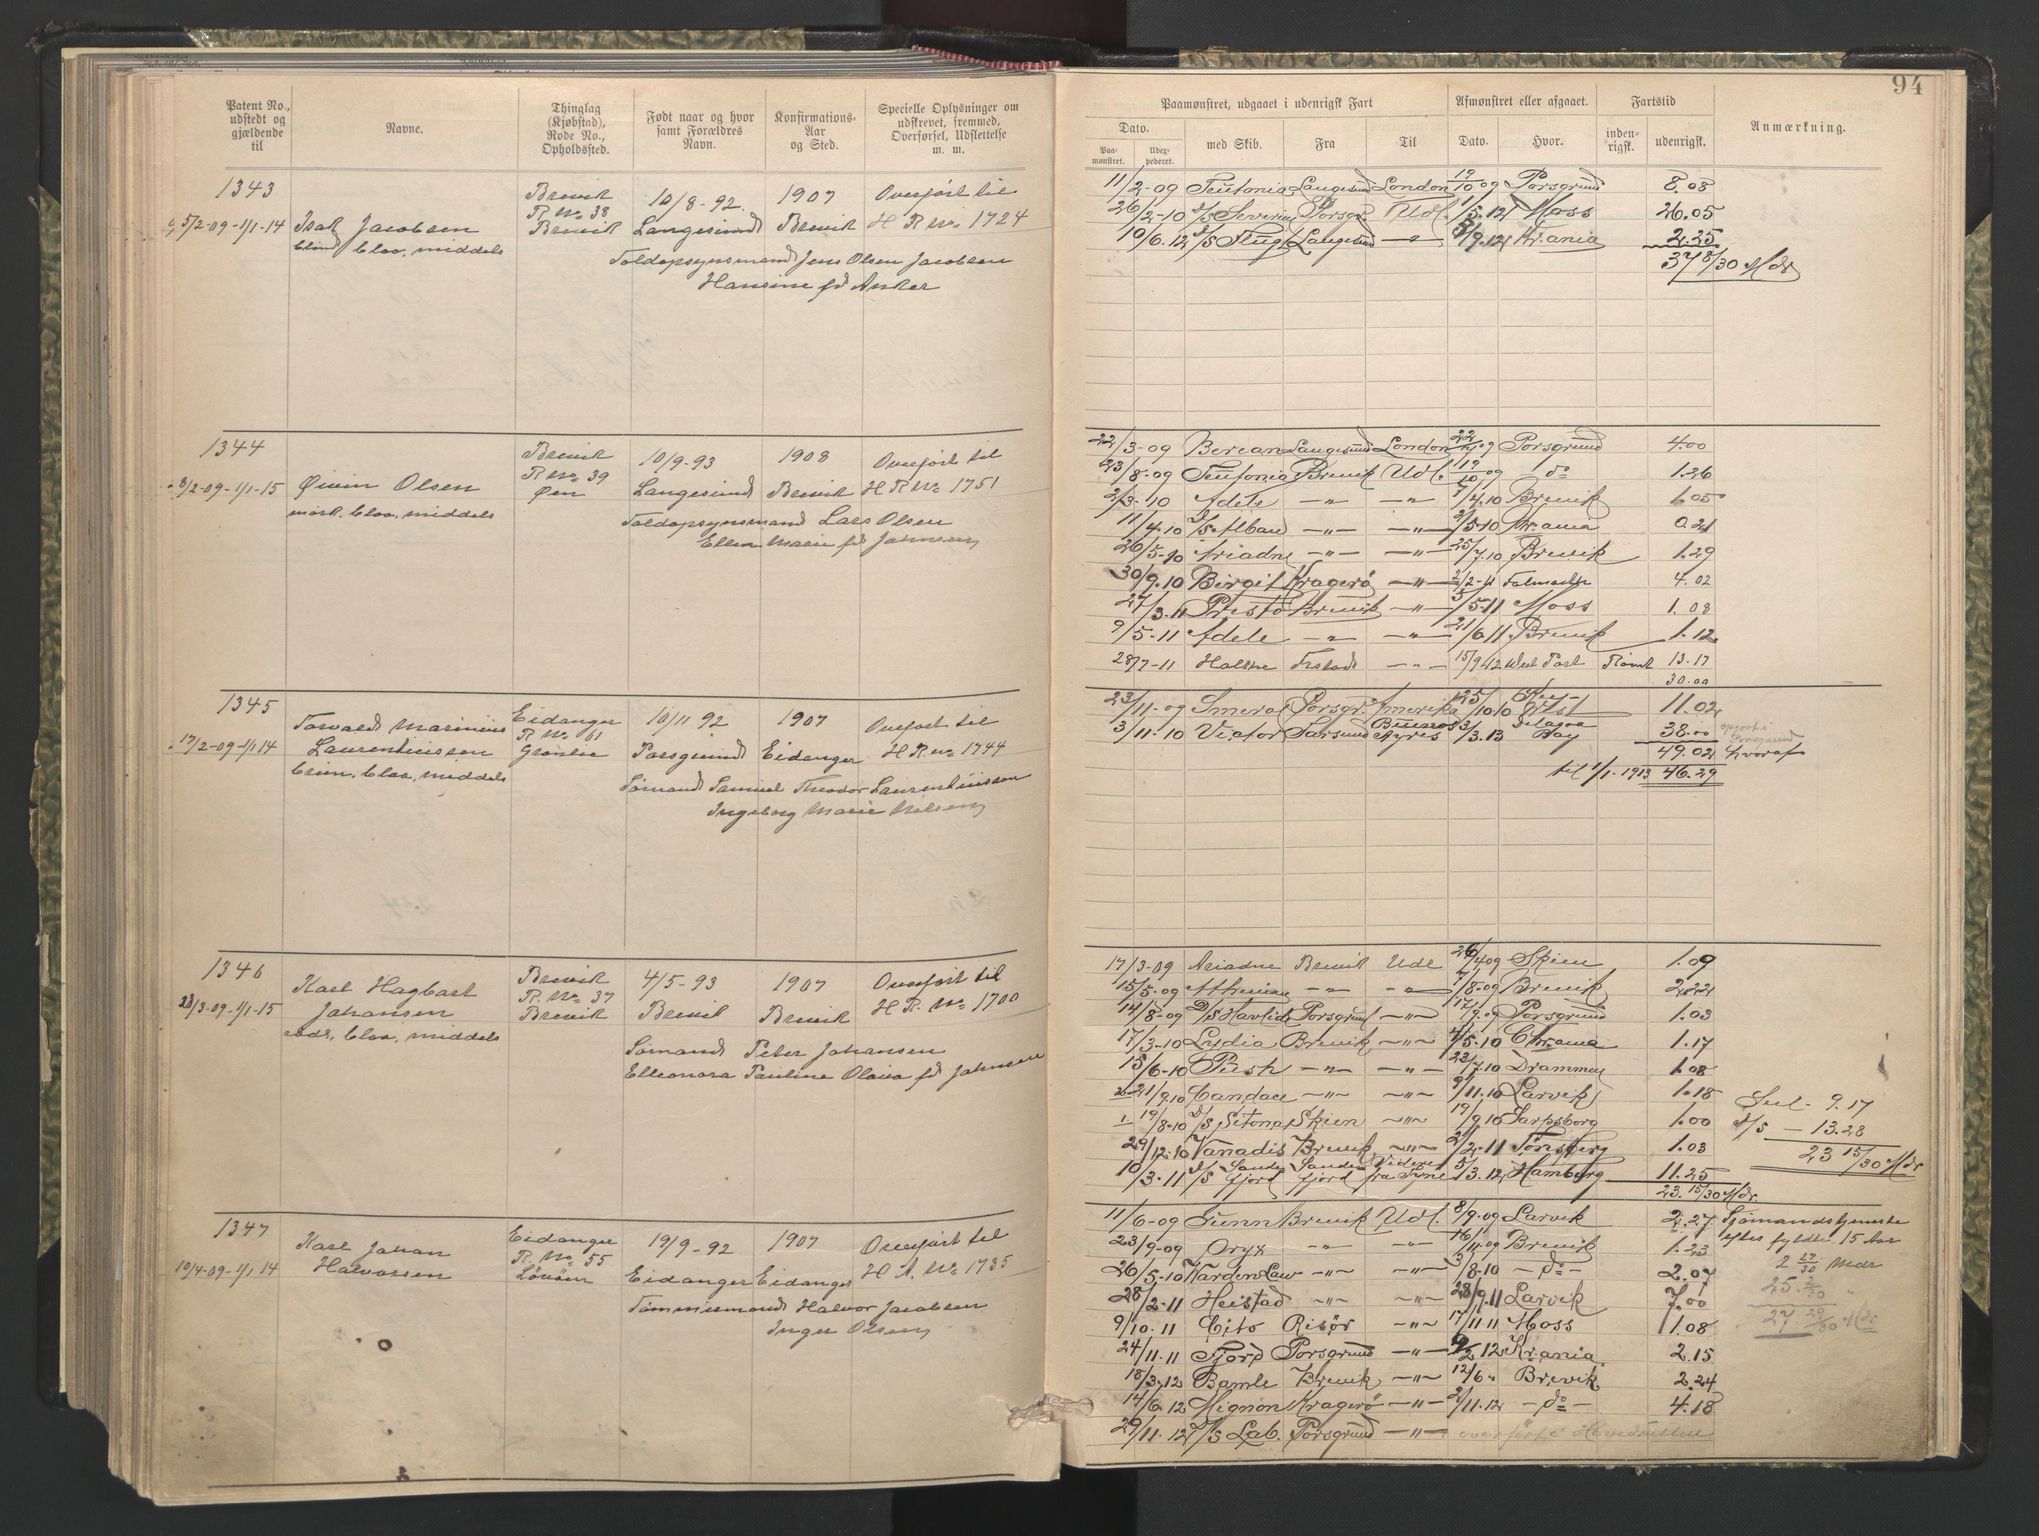 94
Patent No., udstedt og gjældende til
Navne.
Thinglag (Kjøbstad), Rode No., Opholdssted.
Født naar og hvor samt Forældres Navn.
Konfirmations-Aar og Sted.
Specielle Oplysninger om udskrevet, fremmed, Overførsel, Udslettelse m. m.
Paamønstret, udgaaet i udenrigsk Fart
Afmønstret eller afgaaet.
Fartstid
Anmærkning.
Dato.
Paa-mønstret.
Udex-pederet.
med Skib.
Fra
Til
Dato.
Hvor.
inden-rigsk.
udenrigsk.
1343
5/2-09-1/1-14
Isak Jacobsen
blond, blaa, middels
Brevik
R No 38
Brevik
10/8-92
Langesund
1907
Brevik
Overført til
H R No 1724
Toldopsynsmand Jens Olsen Jacobsen
Hansine fd Anker
11/2-09 Teutonia Langesund London 19/10 09 Porsgrund 8.08
26/2-10 d/s Severin Porsgr. Udl. 1/5.12 Moss 26.05
10/6.12 d/s Flugt Langesund -"- 3/9.12 Kr.ania 2.25
37 8/30 Mdr
1344
8/2-09-1/1-15
Øivin Olsen
mørk, blaa, middels
Brevik
R No 39
Øen
10/9-93
Langesund
1908
Brevik
Overført til
H R No 1751
Toldopsynsmand Lars Olsen
Ellen Marie fd Johnsen
22/3-09 Berean Langesund London 22/7 09 Porsgrund 4.00
23/8-09 Teutonia Brevik Udl. 19/10 09 do 1.26
2/3-10 Adele -"- -"- 7/4.10 Brevik 1.05
11/4.10 d/s Alban -"- -"- 2/5-10 Kr.ania 0.21
26/5-10 Ariadne -"- -"- 25/7.10 Brevik 1.29
30/9.10 Birgit Kragerö -"- 2/2-11 Falmouth 4.02
27/3.11 Presto Brevik -"- 5/5-11 Moss 1.08
9/5-11 Adele -"- -"- 21/6 11 Brevik 1.12
28/7-11 -"- 15/9 12 West Port Rømt 13.17
30.00
1345
17/2-09-1/1 14
Torvald Marinius
Laurentiussen
brun, blaa, middels
Eidanger
R No 61
Grønlie
10/11 92
Porsgrund
1907
Eidanger
Overført til
H R No 1744
Sømand Samuel Theodor Laurentiussen
Ingeborg Marie Nielsen
23/11-09 Smeral Porsgr. Amerika 25/10 10 Key West 11.02
3/11.10 Victor Sarpsund Buenos Ayres 3/3.13 Delagoa Bay 38.00
49.02 hvoraf
til 1/1. 1913 46.29
1346
23/3-09-1/1-15
Karl Hagbart
Johansen
rød, blaa, middels
Brevik
R. No 37
Brevik
4/5-93
Brevik
1907
Brevik
Overført til
H R. No 1700
Sømand Peter Johansen
Elleonora Pauline Olava fd Johnsen
17/3-09 Ariadne Brevik Udl 26/4 09 Skien 1.09
15/5-09 -"- -"- 7/8-09 Brevik 2.22
14/8-09 D/S Havlide Porsgrund -"- 17/9.09 Porsgrund 1.03
17/3-10 Lydia Brevik -"- 4/5.10 Chr.ania 1.17
15/6-10 Push -"- -"- 23/7.10 Drammen 1.08
21/9.10 Candace -"- -"- 9/11.10 Larvik 1.18
19/8-10 d/s Sitona Skien -"- 19/9.10 Sarpsborg 1.00
29/12-10 Vanadis Brevik -"- 2/2-11 Tønsberg 1.03
10/3-11 d/s Sandefjord Sandefjord Videre fra Tyne 5/3.12 Hamburg 11.25
23. 15/30 Mdr.
Seil - 9.17
d/s - 13.28
23 15/30 Mdr
1347
10/4-09-1/1 14
Karl Johan
Halvorsen
Eidanger
R. No 55
Lönöen
19/9-92
Eidanger
1907
Eidanger
Overført til
H R. No 1735
Tømmermand Halvor Jacobsen
Inger Olsen
11/6-09 Gunn Brevik Udl. 8/9-09 Larvik 2.27
23/9-09 Oryx -"- -"- 16/11-09 Brevik 1.23
26/5-10 -"- -"- 3/8.10 -do- 2.07
28/2-11 Heistad -"- -"- 28/9.11 Larvik 7.00
9/10.11 Cito Risör -"- 17/11.11 Moss 1.08
24/11.11 Fjord Porsgrund -"- 9/2 12 Kr.ania 2.15
18/3.12 Bamle Brevik -"- 12/6 " Brevik 2.24
14/6.12 Mignon Kragerö -"- 2/11.12 -do- 4.18
29/11.12 d/s Lab. Porsgrund -"- overført i Hovedrullen
Sjømandstjeneste
efter fyldte 15 Aar
2 27/30 Mdr
25. 2/30 "
27 29/30 Mdr